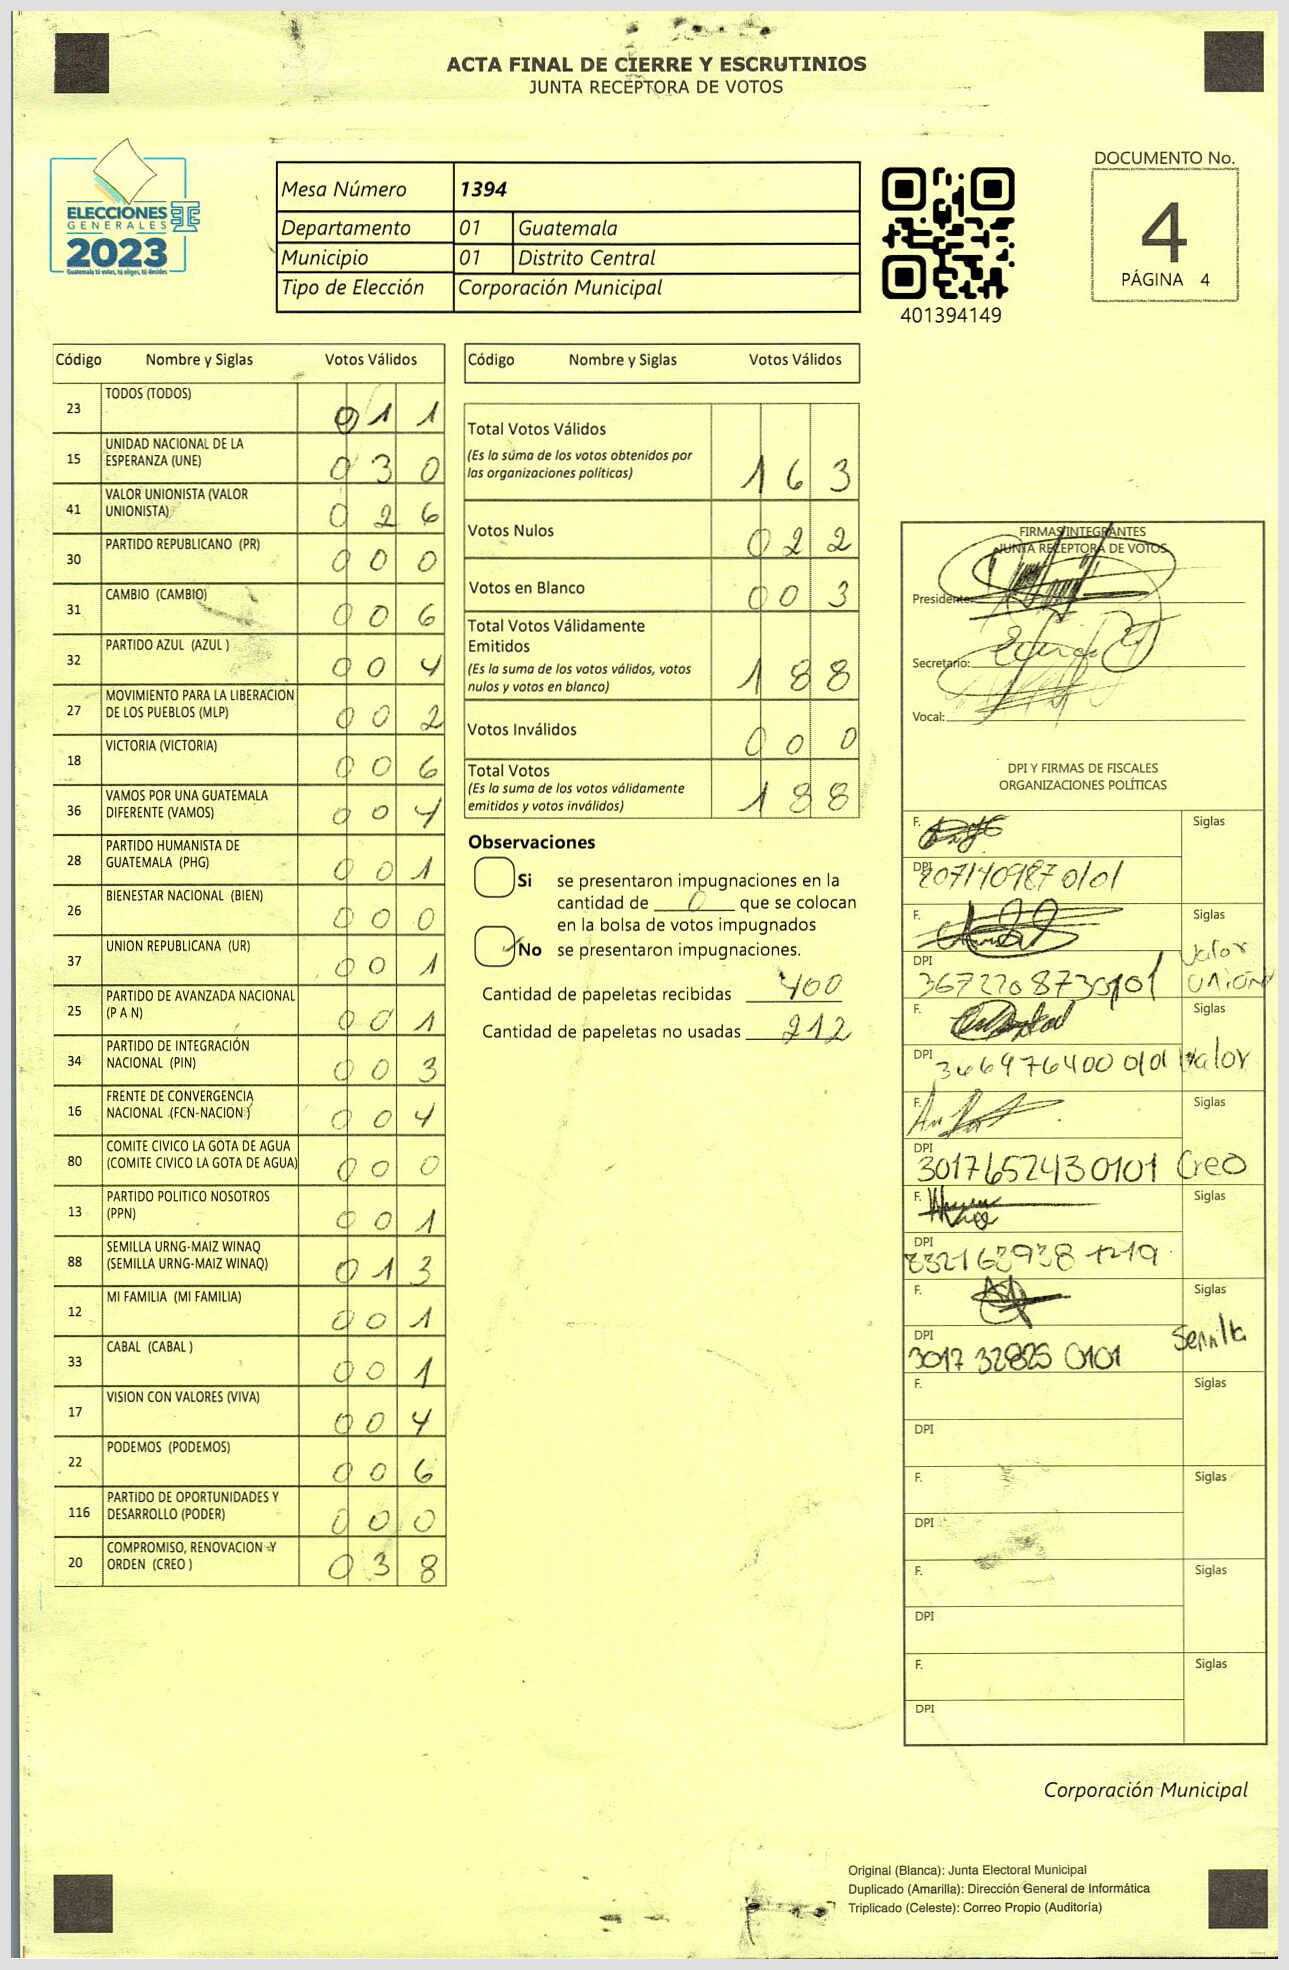 ACTA FINAL DE CIERRE Y ESCRUTINIOS
JUNTA RECEPTORA DE VOTOS
ELECCIONES
GENERALES
2023
Guatemala tú votas, tú eliges, tú decides
Mesa Número 1394
Departamento 01 Guatemala
Municipio 01 Distrito Central
Tipo de Elección Corporación Municipal
401394149
DOCUMENTO No.
4
PÁGINA 4
Código Nombre y Siglas Votos Válidos
23 TODOS (TODOS) 0 1 1
15 UNIDAD NACIONAL DE LA
ESPERANZA (UNE) 0 3 0
41 VALOR UNIONISTA (VALOR
UNIONISTA) 0 2 6
30 PARTIDO REPUBLICANO (PR) 0 0 0
31 CAMBIO (CAMBIO) 0 0 6
32 PARTIDO AZUL (AZUL ) 0 0 4
27 MOVIMIENTO PARA LA LIBERACION
DE LOS PUEBLOS (MLP) 0 0 2
18 VICTORIA (VICTORIA) 0 0 6
36 VAMOS POR UNA GUATEMALA
DIFERENTE (VAMOS) 0 0 4
28 PARTIDO HUMANISTA DE
GUATEMALA (PHG) 0 0 1
26 BIENESTAR NACIONAL (BIEN) 0 0 0
37 UNION REPUBLICANA (UR) 0 0 1
25 PARTIDO DE AVANZADA NACIONAL
(P A N) 0 0 1
34 PARTIDO DE INTEGRACIÓN
NACIONAL (PIN) 0 0 3
16 FRENTE DE CONVERGENCIA
NACIONAL (FCN-NACION) 0 0 4
80 COMITE CIVICO LA GOTA DE AGUA
(COMITE CIVICO LA GOTA DE AGUA) 0 0 0
13 PARTIDO POLITICO NOSOTROS
(PPN) 0 0 1
88 SEMILLA URNG-MAIZ WINAQ
(SEMILLA URNG-MAIZ WINAQ) 0 1 3
12 MI FAMILIA (MI FAMILIA) 0 0 1
33 CABAL (CABAL ) 0 0 1
17 VISION CON VALORES (VIVA) 0 0 4
22 PODEMOS (PODEMOS) 0 0 6
116 PARTIDO DE OPORTUNIDADES Y
DESARROLLO (PODER) 0 0 0
20 COMPROMISO, RENOVACION Y
ORDEN (CREO ) 0 3 8
Código Nombre y Siglas Votos Válidos
Total Votos Válidos
(Es la suma de los votos obtenidos por
las organizaciones políticas) 1 6 3
Votos Nulos 0 2 2
Votos en Blanco 0 0 3
Total Votos Válidamente
Emitidos
(Es la suma de los votos válidos, votos
nulos y votos en blanco) 1 8 8
Votos Inválidos 0 0 0
Total Votos
(Es la suma de los votos válidamente
emitidos y votos inválidos) 1 8 8
Observaciones
Si se presentaron impugnaciones en la
cantidad de 0 que se colocan
en la bolsa de votos impugnados
No se presentaron impugnaciones.
Cantidad de papeletas recibidas 400
Cantidad de papeletas no usadas 212
FIRMAS INTEGRANTES
JUNTA RECEPTORA DE VOTOS
Presidente:
Secretario:
Vocal:
DPI Y FIRMAS DE FISCALES
ORGANIZACIONES POLÍTICAS
F. Siglas
DPI
F. Siglas
Valor
DPI 3672208730101 UNION
F. Siglas
DPI 366976400 0101 Valor
F. Siglas
DPI 3017652430101 Creo
F. Siglas
DPI
F. Siglas
DPI 3017 32825 0101
F. Siglas
DPI
F. Siglas
DPI
F. Siglas
DPI
F. Siglas
DPI
Corporación Municipal
Original (Blanca): Junta Electoral Municipal
Duplicado (Amarilla): Dirección General de Informática
Triplicado (Celeste): Correo Propio (Auditoría)